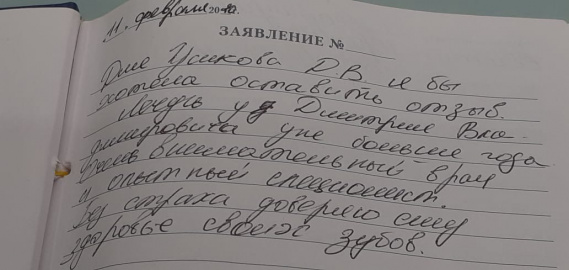 11. февраля 20
ЗАЯВЛЕНИЕ №
Для Усикова Д В я бы
хотела оставить отзыв.
Лечусь у Дмитрия Вла-
димировича уже больше года
Очень внимательный врач
и опытный специалист.
Без страха доверяю ему
здоровье своих зубов.